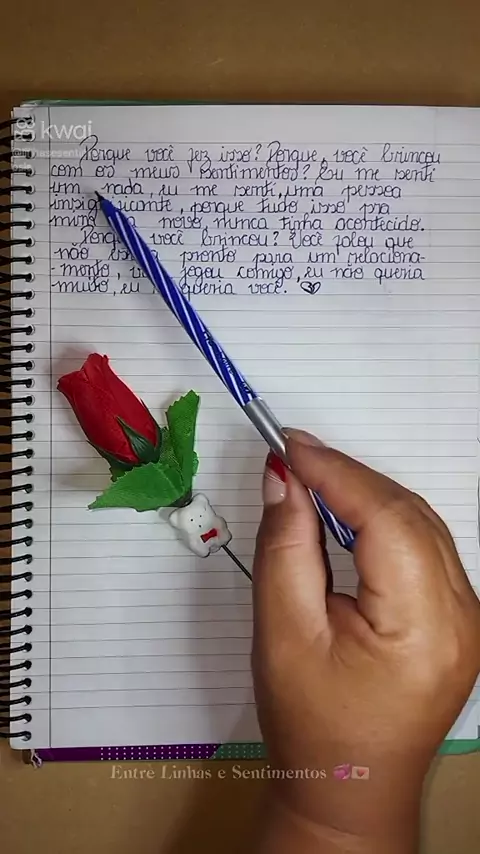 kwai
Porque você fez isso? Porque, você brincou
com os meus sentimentos? Eu me senti
um nada, eu me senti, uma pessoa
insignificante, porque tudo isso pra
novo, nunca tinha acontecido.
Porque você brincou? Você falou que
não, pronto para um relaciona-
-mento, jogou comigo, eu não queria
muito, eu queria você. 💔
Entre Linhas e Sentimentos 💞💌